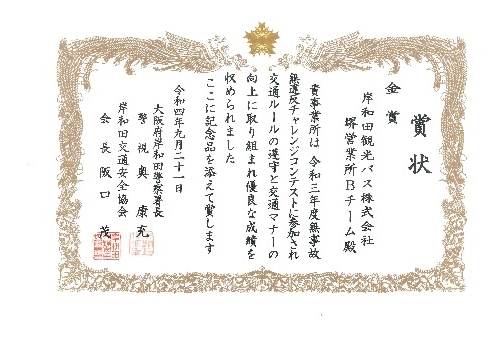 賞状
金賞
岸和田観光バス株式会社
堺営業所Bチーム殿
貴事業所は 令和三年度無事故
無違反チャレンジコンテストに参加され
交通ルールの遵守と交通マナーの
向上に取り組まれ優良な成績を
収められました
ここに記念品を添えて賞します
令和四年九月二十一日
大阪府岸和田警察署長
警視 奥 康充
岸和田交通安全協会
会長 阪口 茂